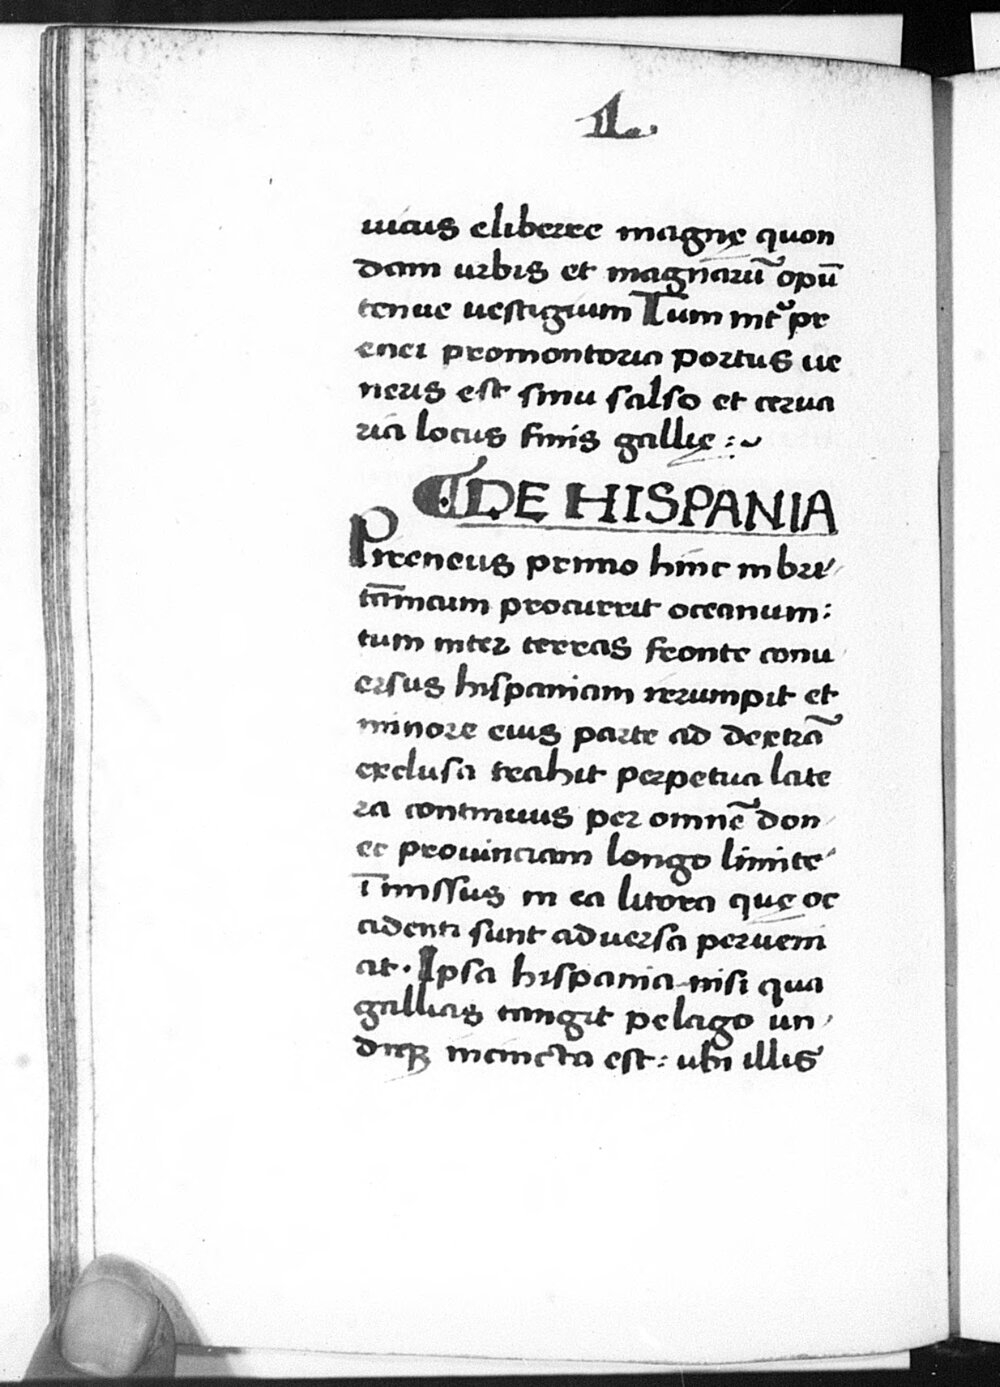 .L.
uicus eliberre magnę quon
dam urbis et magnarū opū
tenue uestigium Tum int᷒ pr
enei promontoria portus ue
neris est sinu salso et cerua
ria locus finis gallię :~
DE HISPANIA
Pireneus primo hinc in bri
tānicum procurrit oceanum:
tum inter terras fronte conu
ersus hispaniam irrumpit et
minore eius parte ad dextrā
exclusa trahit perpetua late
ra continuus per omnē don
ec prouinciam longo limite
īmissus in ea litora quę oc
cidenti sunt aduersa perueni
at. Ipsa hispania nisi qua
gallias tangit pelago un
diqꝫ incincta est: ubi illis